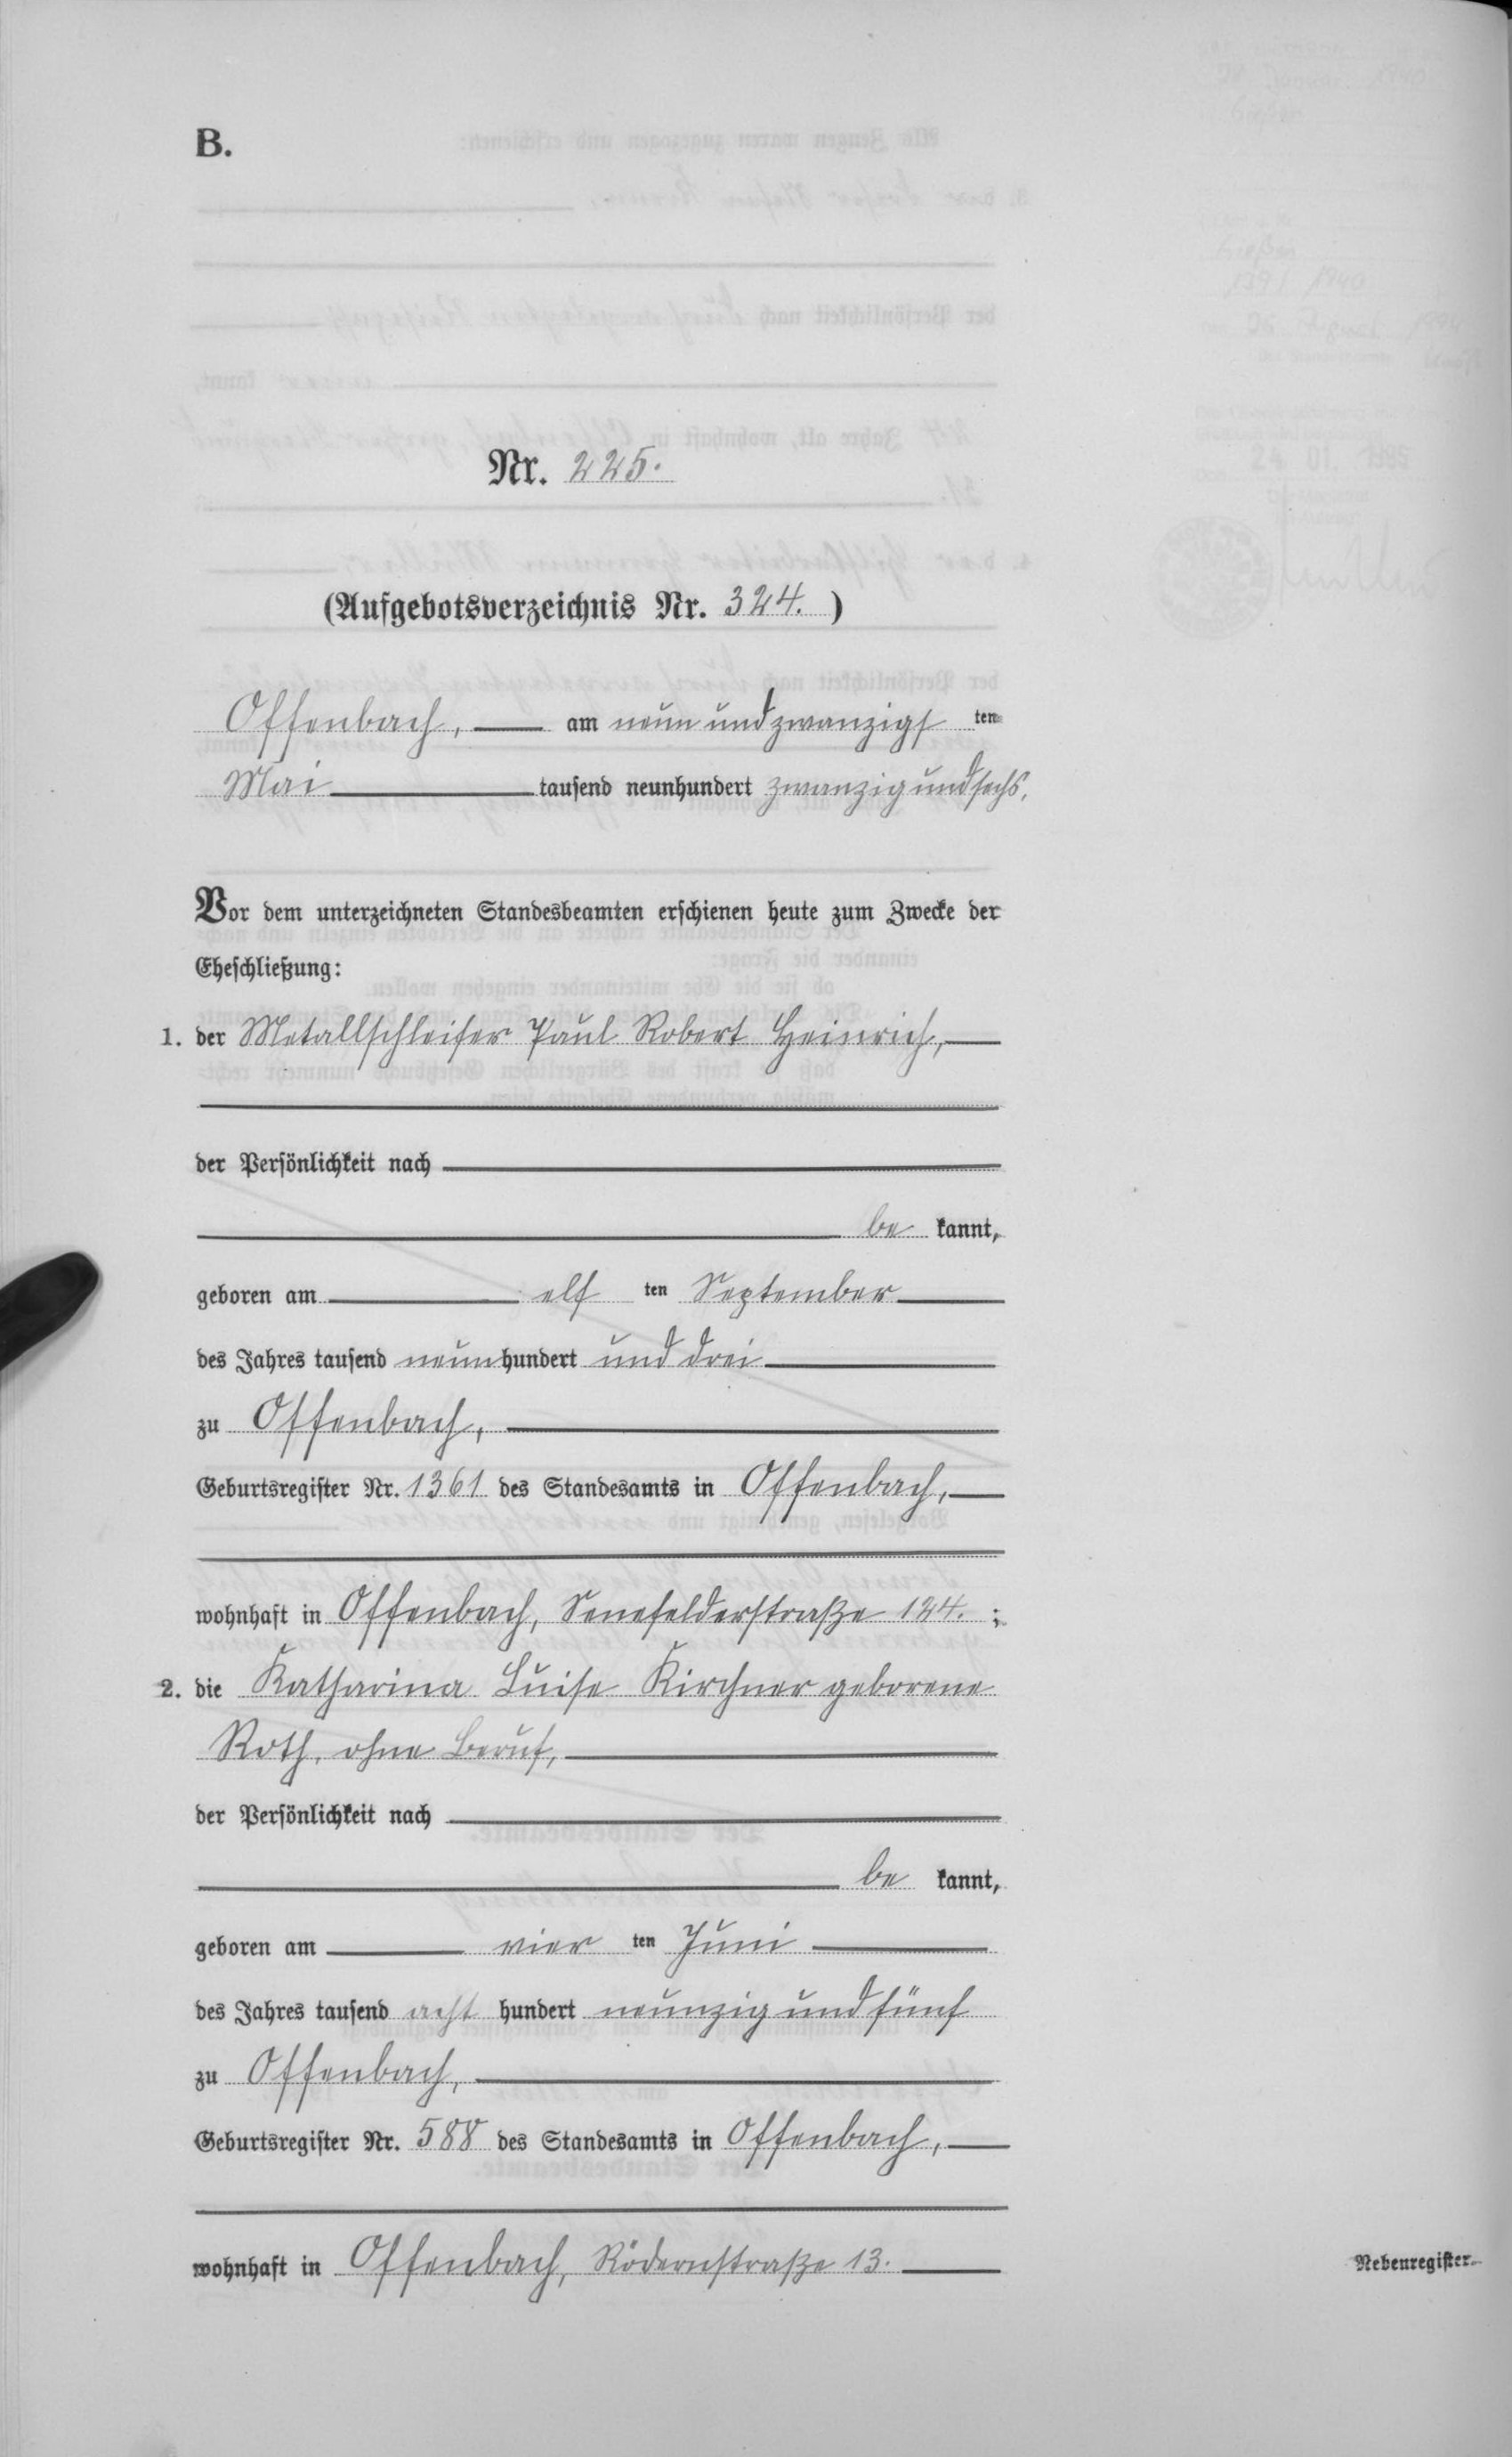 B.
Nr. 225.
(Aufgebotsverzeichnis Nr. 324.)
Offenbach, am neun und zwanzigsten
Mai tausend neunhundert zwanzig und sechs.
Vor dem unterzeichneten Standesbeamten erschienen heute zum Zwecke der
Eheschließung:
1. der Metallschleifer Paul Robert Heinrich,
der Persönlichkeit nach
be kannt,
geboren am elf ten September
des Jahres tausend neun hundert und drei
zu Offenbach,
Geburtsregister Nr. 1361 des Standesamts in Offenbach,
wohnhaft in Offenbach, Senefelderstraße 124. ;
2. die Katharina Luise Kirchner geborene
Roth, ohne Beruf,
der Persönlichkeit nach
be kannt,
geboren am vier ten Juni
des Jahres tausend acht hundert neunzig und fünf
zu Offenbach,
Geburtsregister Nr. 588 des Standesamts in Offenbach,
wohnhaft in Offenbach, Rödernstraße 13.
Nebenregister.